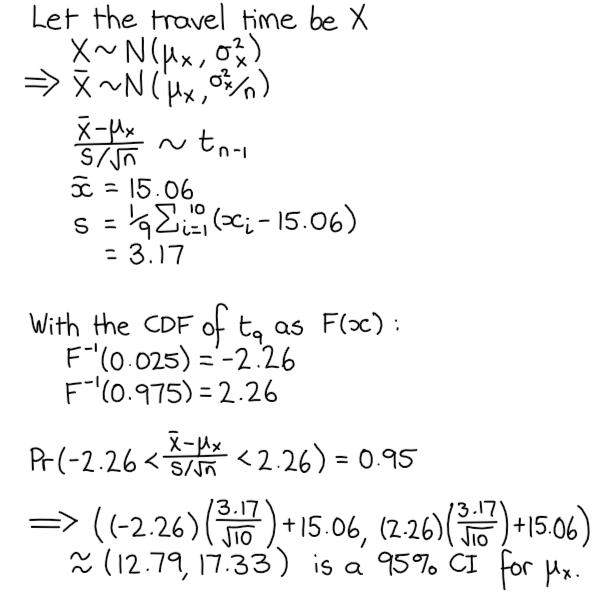 Let the travel time be X
X ~ N(μₓ, σₓ²)
⇒ X̄ ~ N(μₓ, σₓ²/n)
(X̄-μₓ)/(S/√n) ~ tₙ₋₁
x̄ = 15.06
s = 1/9 ∑ᵢ₌₁¹⁰ (xᵢ - 15.06)
= 3.17
With the CDF of t₉ as F(x) :
F⁻¹(0.025) = -2.26
F⁻¹(0.975) = 2.26
Pr(-2.26 < (X̄-μₓ)/(S/√n) < 2.26) = 0.95
⇒ ((-2.26)(3.17/√10) + 15.06, (2.26)(3.17/√10) + 15.06)
≈ (12.79, 17.33) is a 95% CI for μₓ.